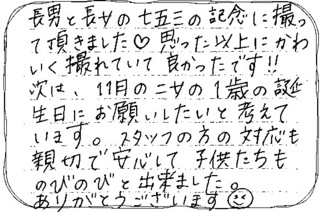 長男と長女の七五三の記念に撮っ
て頂きました♡ 思った以上にかわ
いく撮れていて良かったです!!
次は、11月の二女の1歳の誕
生日にお願いしたいと考えて
います。スタッフの方の対応も
親切で安心して子供たちも
のびのびと出来ました。
ありがとうございます